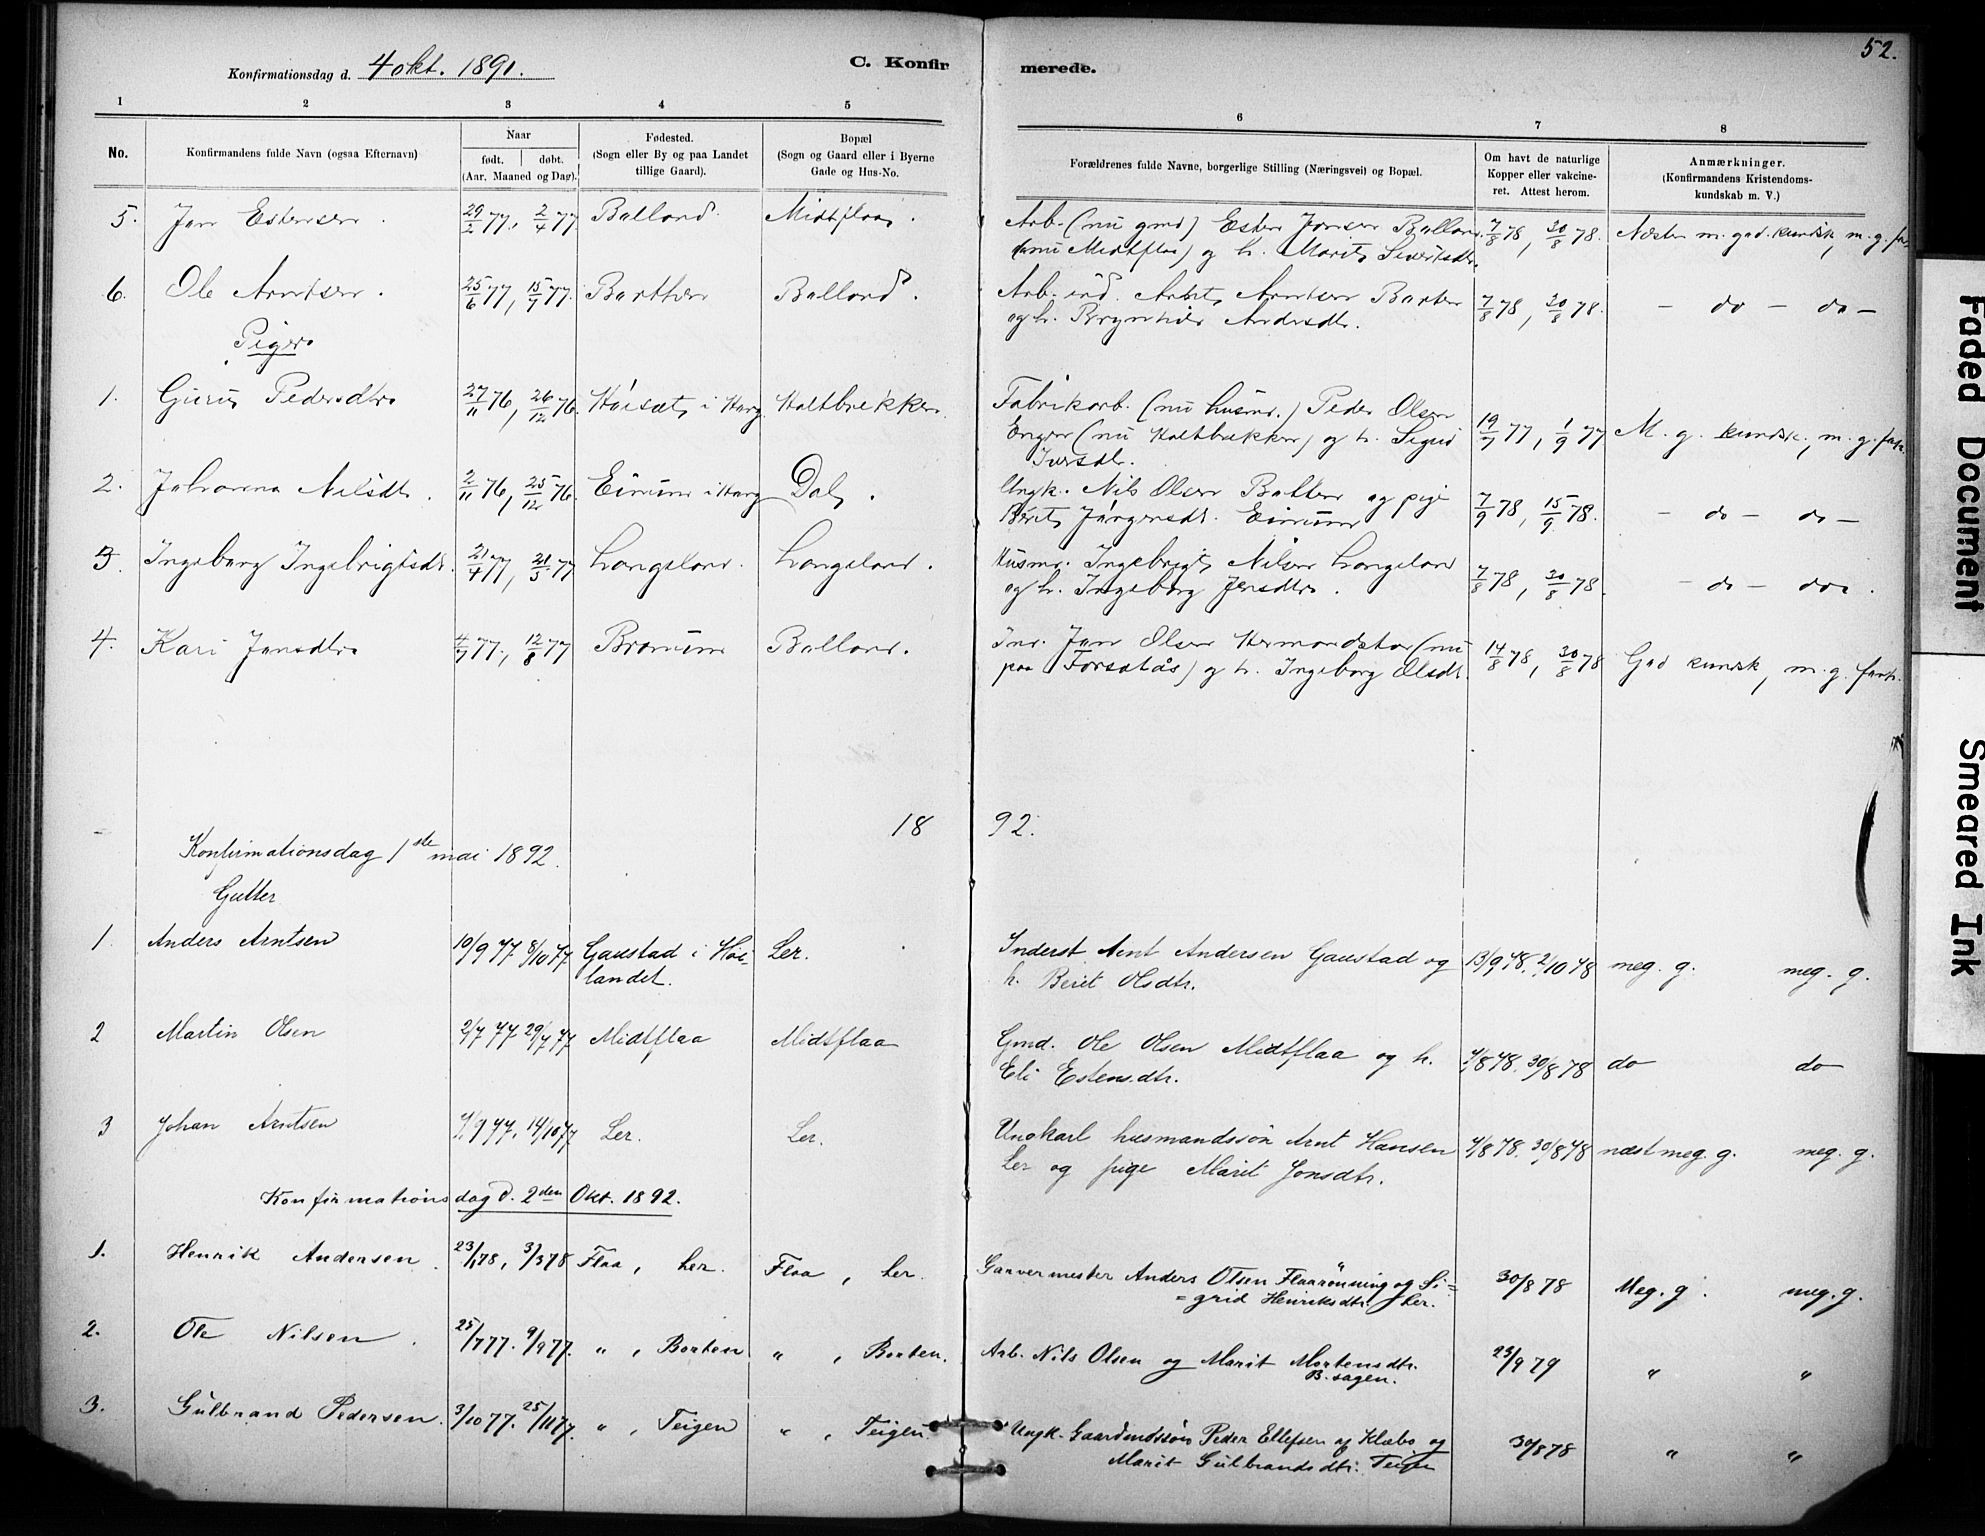 52.
Konfirmationsdag d. 4 okt. 1891.
C. Konfirmerede.
1 2 3 4 5 6 7 8
No.
Konfirmandens fulde Navn (ogsaa Efternavn)
Naar
født. døbt.
(Aar. Maaned og Dag).
Fødested.
(Sogn eller By og paa Landet
tillige Gaard).
Bopæl
(Sogn og Gaard eller i Byerne
Gade og Hus-No.
Forældrenes fulde Navne, borgerlige Stilling (Næringsvei) og Bopæl.
Om havt de naturlige
Kopper eller vakcine-
ret. Attest herom.
Anmærkninger.
(Konfirmandens Kristendoms-
kundskab m. V.)
5. Jon Estensen. 29/2 77, 2/4 77 Balland. Midtflaa. Arb. (nu gmd) Esten Jonsen 7/8 78, 30/8 78. Næsten m. god. kundsk, m. g.
(nu Midtflaa) og h. Marit Sivertsdtr.
6. Ole Arntsen. 25/6 77, 15/7 77. Borthen Balland. Arb. ind. Arnt Arntsen Borten 7/8 78, 30/8 78. - do - do -
og h. Andersdtr.
Piger
1. Guru Pedersdtr 27/11 76, 26/12 76. i Horg Holtbækken. Fabrikarb. (nu husmd.) Peder Olsen
Engen (nu Holtbækken) og h. Sigrid 19/7 77, 1/9 77 M. g. kundsk, m. g.
Iversdtr.
2. Johanna Nilsdtr. 2/11 76, 25/12 76. i Horg Dal. Ungk. Nils Olsen og pige
Berit Jørgensdtr. 7/9 78, 15/9 78. - do - do -
3. Ingeborg Ingebrigtsdtr. 21/4 77, 21/5 77 Langeland. Langeland. Husmd. Ingebrigt Nilsen Langeland
og h. Ingeborg Jensdtr. 7/8 78, 30/8 78. - do - do.
4. Kari Jonsdtr 4/7 77, 12/8 77 Balland. Ind. Jon Olsen (nu
paa Forsetås) og h. Ingeborg Olsdtr. 14/8 78, 30/8 78 God kundsk, m. g.
1892.
Konfirmationsdag 1ste mai 1892.
Gutter
1. Anders Arntsen 10/9 77 8/10 77 Gaustad i Høi- Ler. Inderst Arnt Andersen Gaustad og 13/9 78. 2/10 78 meg. g. meg. g.
landet. h. Berit Olsdtr.
2 Martin Olsen 2/7 77 29/7 77 Midtflaa Midtflaa Gmd. Ole Olsen Midtflaa og h. 7/8 78. 30/8 78 do do
Eli Estensdtr.
3 Johan Arntsen 7/9 77. 14/10 77 Ler. Ler. Ungkarl husmandssøn Arnt Hansen 7/8 78. 30/8 78 næst meg. g. meg. g.
Ler og pige Marit Jonsdtr.
Konfirmationsdag d. 2den Okt. 1892.
1. Henrik Andersen. 23/1 78, 3/3 78 Flaa, Ler. Flaa, Ler. Garvermester Anders Olsen Flaarønning og Si= 30/8 78 Meg. g. meg. g.
=grid Henriksdtr. Ler.
2. Ole Nilsen. 25/7 77. 9/9 77. " , Borten " , Borten. Arb. Nils Olsen og Marit Mortensdtr. 23/9 79 " "
B. sagen.
3. Gulbrand Pedersen. 3/10 77. 25/11 77. " , Teigen " , Teigen. Ungk. Gaardmdssøn Peder Ellefsen af Klæbo og 30/8 78 " "
Marit Gulbrandsdtr. Teigen
Faded Document
Smeared Ink